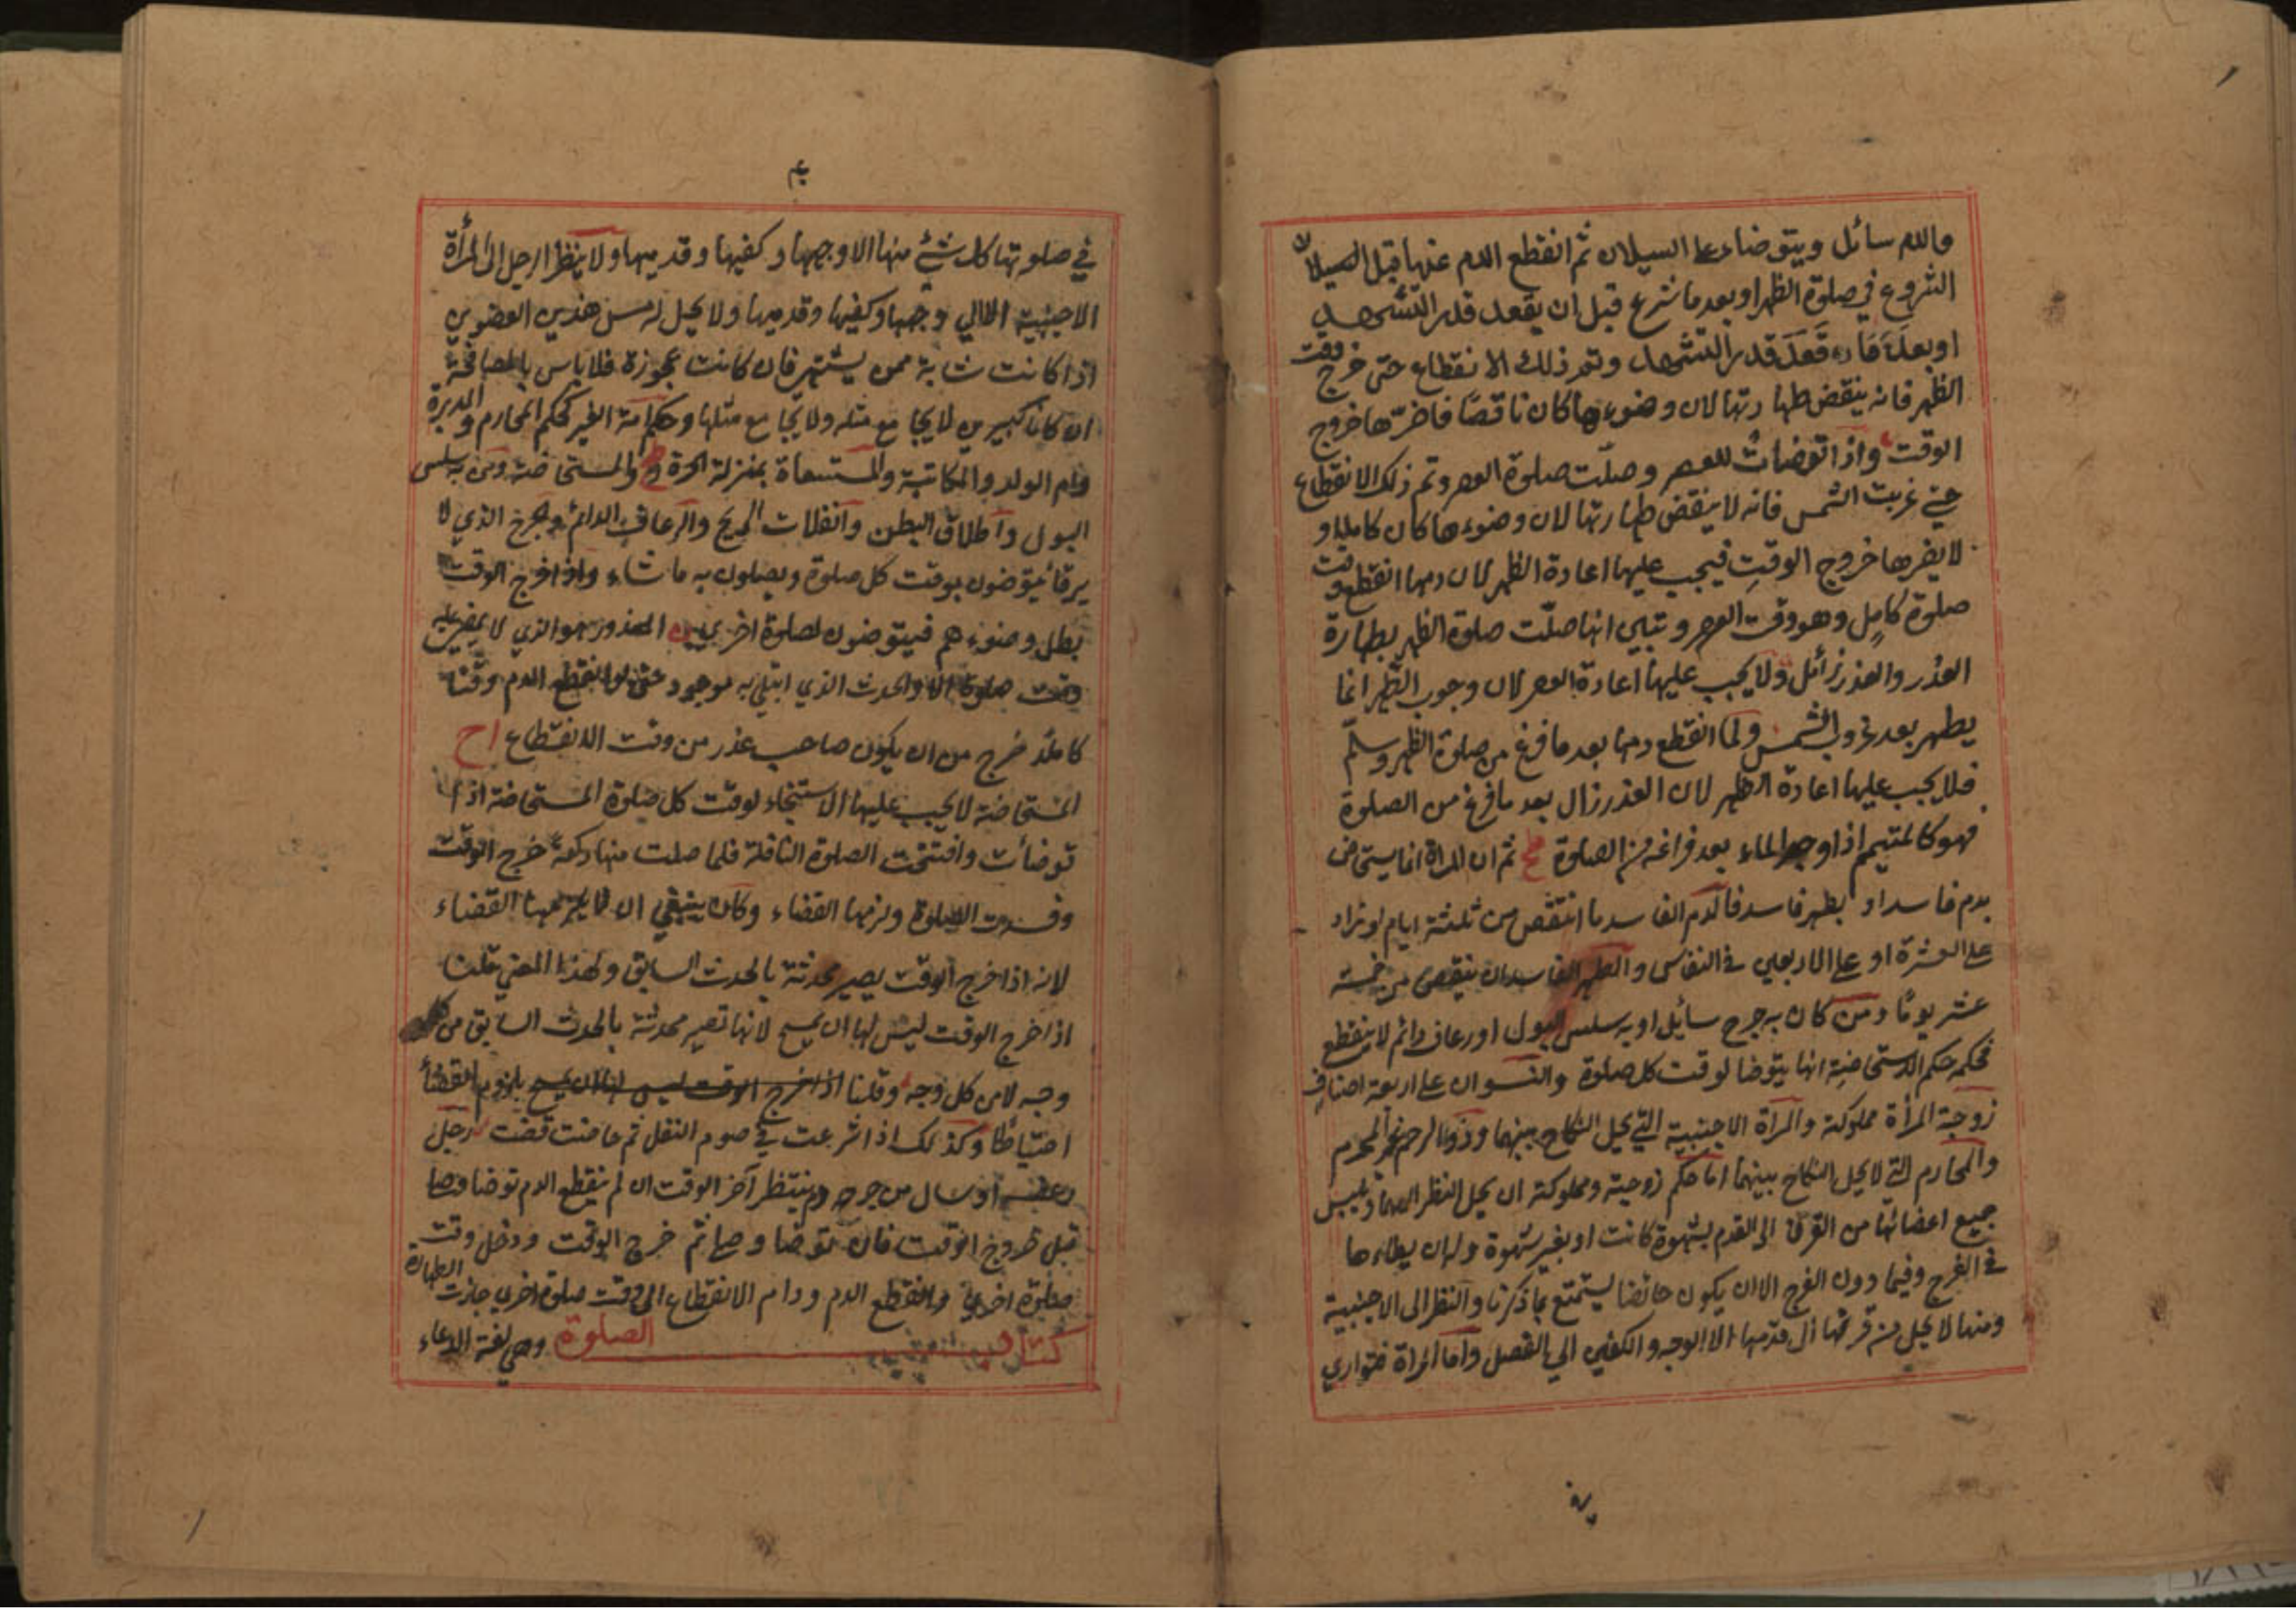 والدم سائل ويتوضاء على السيلان ثم انقطع الدم عنها قبل السيلان
الشروع في صلوة الظهر او بعد ما شرع قبل ان يقعد قدر التشهد
او بعد ما قعد قدر التشهد وتم ذلك الانقطاع حتى خرج وقت
الظهر فانه ينقض طهارتها لان وضوءها كان ناقصا فاضرّها خروج
الوقت واذا توضأت للعصر وصلّت صلوة العصر وتم ذلك الانقطاع
حتى غربت الشمس فانه لا ينقض طهارتها لان وضوءها كان كاملا و
لا يضرها خروج الوقتِ فيجب عليها اعادة الظهر لان دمها انقطع وقت
صلوة كامل وهو وقت العصر وتبين انها صلّت صلوة الظهر بطهارة
العذر والعذر زائل ولا يجب عليها اعادة العصر لان وجوب الظهر انما
يظهر بعد غروب الشمس ولما انقطع دمها بعد ما فرغ من صلوة الظهر وسلّم
فلا يجب عليها اعادة الظهر لان العذر زال بعد ما فرغ من الصلوة
فهو كالمتيمم اذا وجد الماء بعد فراغه من الصلوة ثم ان المراة انما يستحاض
بدم فاسد او بطهر فاسد فالدم الفاسد ما انتقص من ثلثة ايام او زاد
على العشرة او على الاربعين في النفاس والطهر الفاسد ان ينقص من خمسة
عشر يوما ومن كان به جرح سائل او به سلس البول او رعاف دائم لا ينقطع
فحكمه حكم المستحاضة انها يتوضا لوقت كل صلوة والنسوان على اربعة اصناف
زوجة المرأة مملوكة والمراة الاجنبية التي يحل النكاح بينهما وذو الرحم المحرم
والمحارم التي لا يحل النكاح بينهما اما حكم زوجته ومملوكته ان يحل النظر اليهما ويلمس
جميع اعضائها من القرن الى القدم بشهوة كانت او بغير شهوة وله ان يطاءها
في الفرج وفيما دون الفرج الا ان يكون حائضا ليستمتع بما ذكرنا والنظر الى الاجنبية
ومنها لا يحل من قرنها الى قدمها الا الوجه والكفين الى المفصل واما المراة فتواري
في صلوتها كل شئ منها الا وجهها وكفيها وقدميها ولا ينظر الرجل الى المرأة
الاجنبية الا الى وجهها وكفيها وقدميها ولا يحل له مس هذين العضوين
اذا كانت شابة ممن يشتهى فان كانت عجوزة فلا باس بالمصافحة
ان كانا كبيرين لا يجامع مثله ولا يجامع مثلها وحكم امة الغير كحكم المحارم والمدبرة
وام الولد والمكاتبة والمستسعاة بمنزلة الحرة والمستحاضة ومن به سلس
البول واطلاق البطن وانفلات الريح والرعاف الدائم والجرح الذي لا
يرقأ يتوضون بوقت كل صلوة ويصلون به ما شاء واذا خرج الوقت
بطل وضوءهم فيتوضون لصلوة اخرى المعذور هو الذي لا يمضي عليه
وقت صلوة الا والحدث الذي ابتلي به موجود حتى لو انقطع الدم وقتا
كاملا خرج من ان يكون صاحب عذر من وقت الانقطاع
المستحاضة لا يجب عليها الاستنجاء لوقت كل صلوة المستحاضة اذا
توضأت وافتتحت الصلوة النافلة فلما صلت منها ركعة خرج الوقت
وفسدت الصلوة ولزمها القضاء وكان ينبغي ان لا يلزمها القضاء
لانه اذا خرج الوقت يصير محدثة بالحدث السابق ولهذا المعنى قلنا
اذا خرج الوقت ليس لها ان يمسح لانها تصير محدثة بالحدث السابق من
وجه لا من كل وجه وقلنا اذا خرج الوقت ليس لها ان يمسح بلزوم القضأ
احتياطا وكذلك اذا شرعت في صوم النفل ثم حاضت قضت رجل
رعف او سال من جرحه دم ينتظر آخر الوقت ان لم ينقطع الدم توضا وصلى
قبل خروج الوقت فان توضا وصلى ثم خرج الوقت ودخل وقت
صلوة اخرى وانقطع الدم ودام الانقطاع الى وقت صلوة اخرى جازت الطهارة
كتاب الصلوة وهي لغة الدعاء